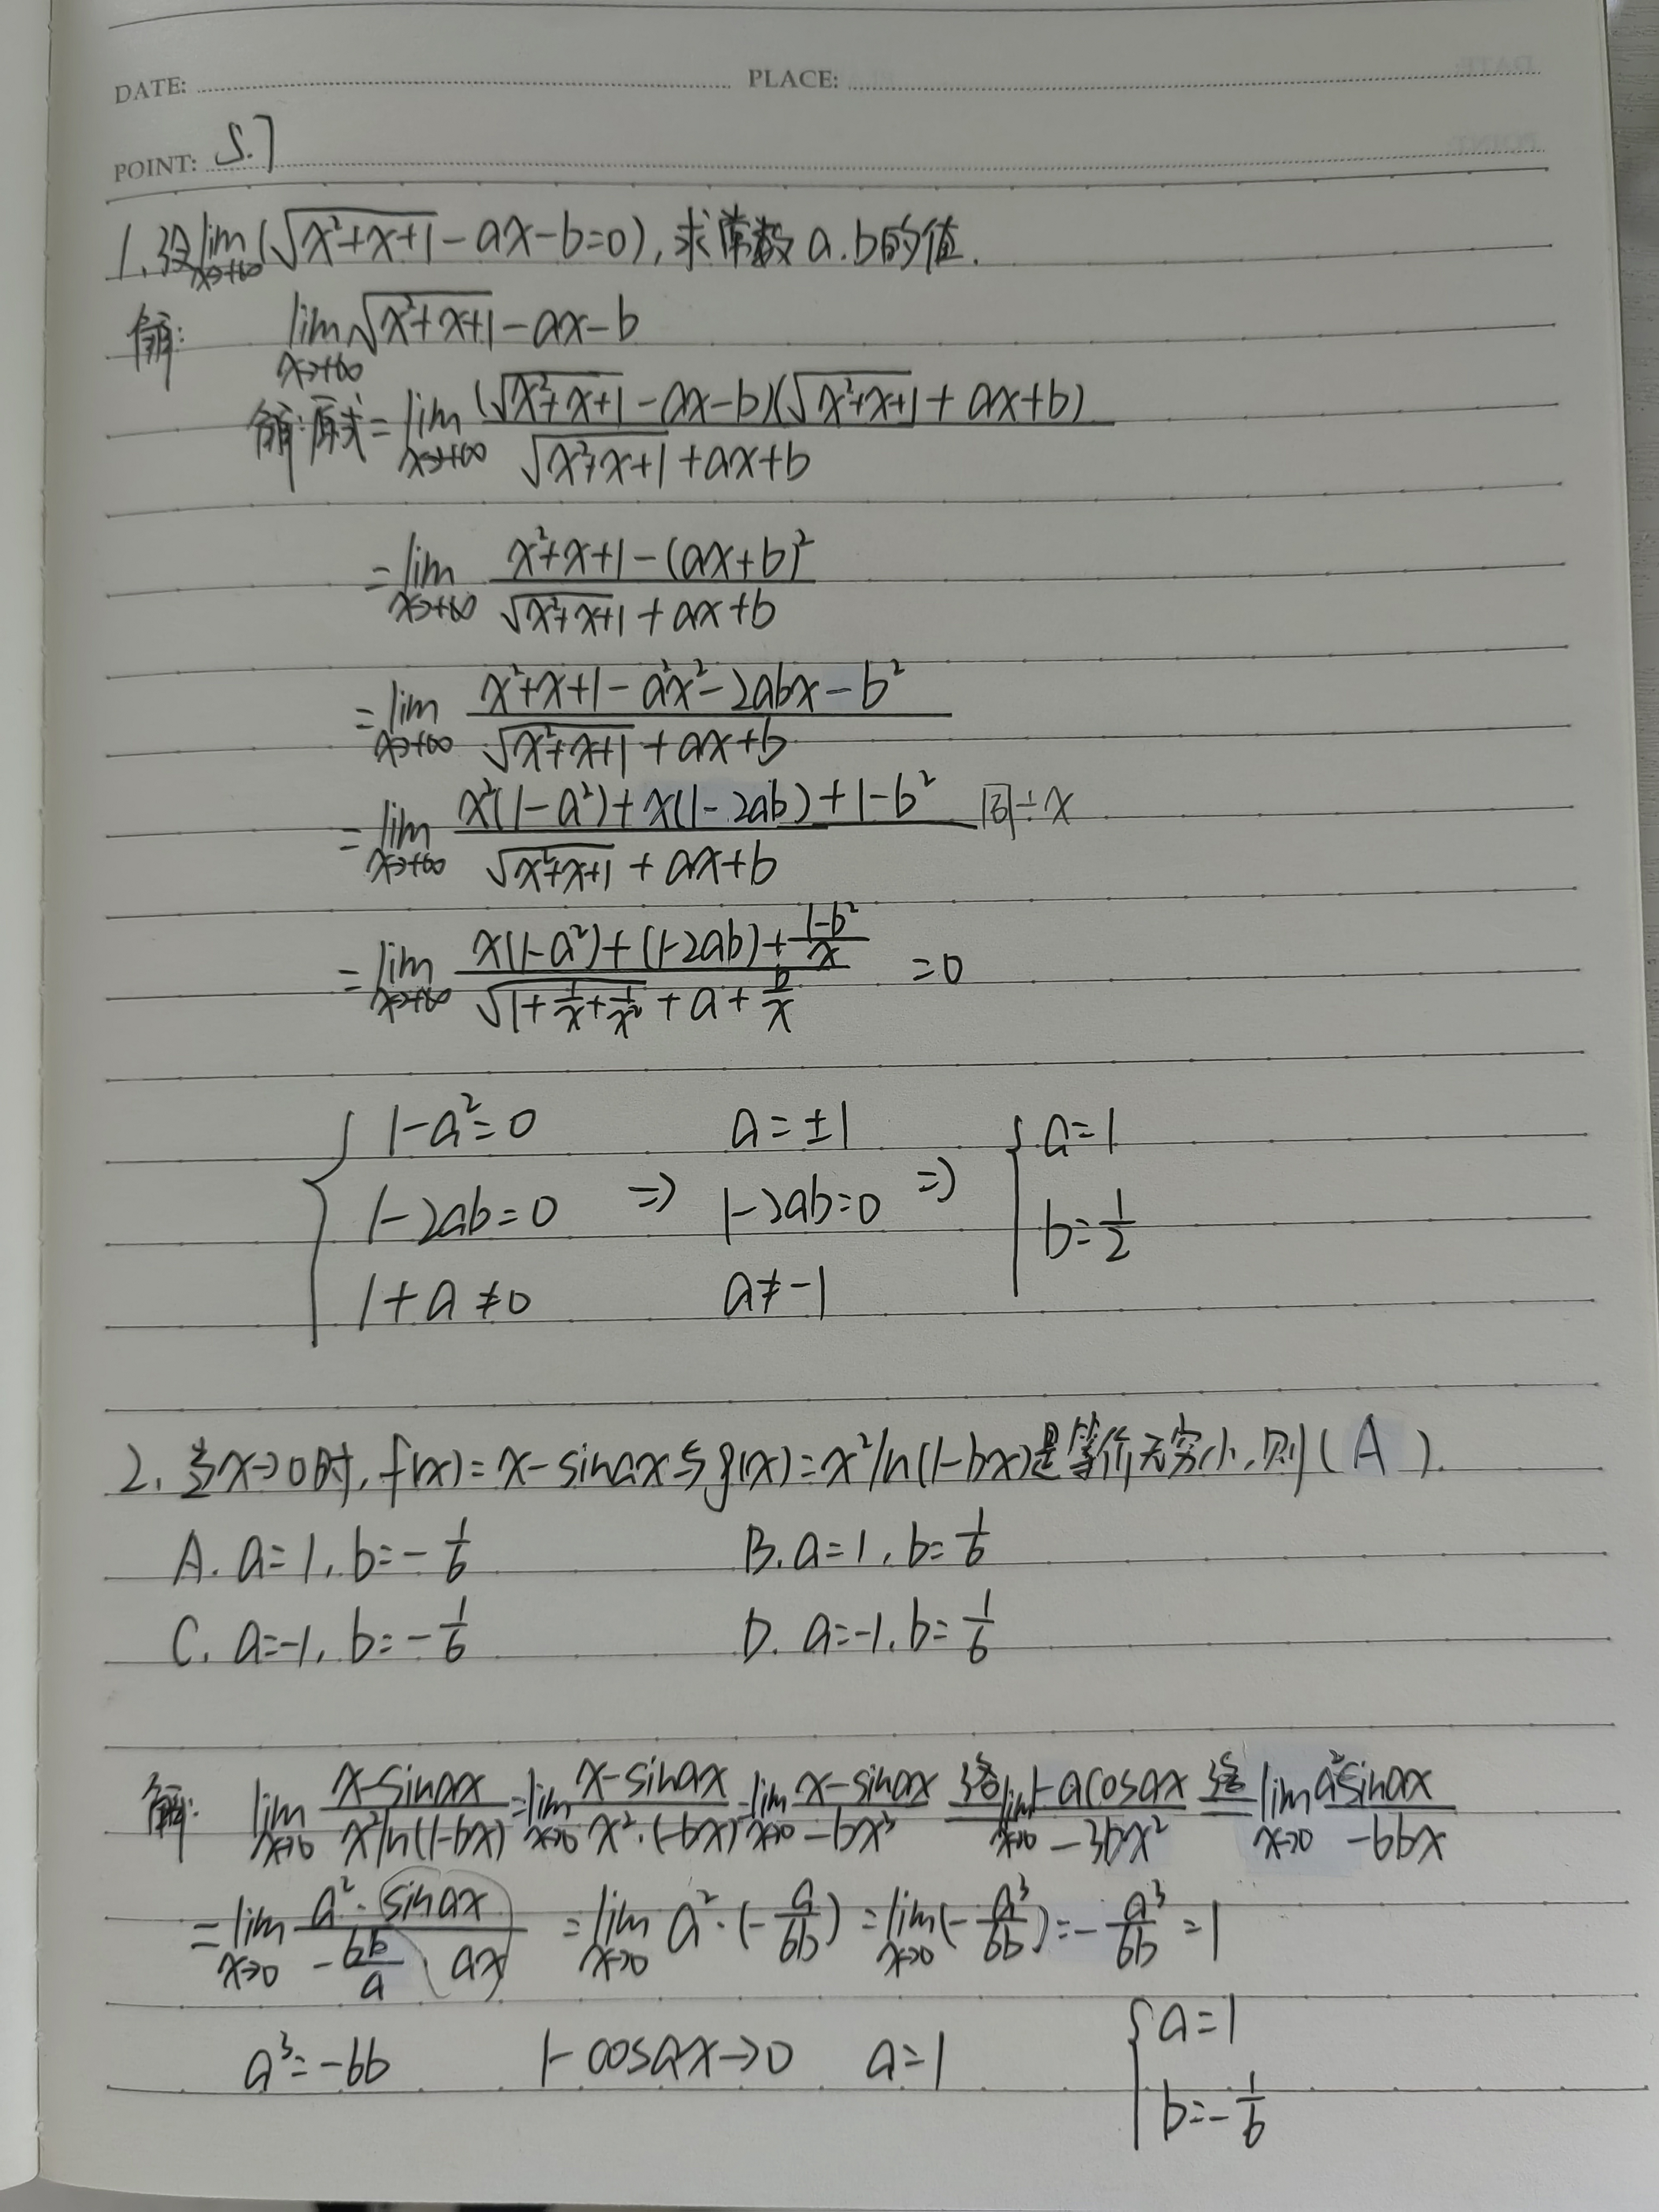 DATE: PLACE:
POINT: 5.7
1. 设lim x→+∞ (√(x²+x+1) - ax - b = 0), 求常数 a.b的值.
解: lim x→+∞ √(x²+x+1) - ax - b
解: 原式 = lim x→+∞ (√(x²+x+1) - ax - b)(√(x²+x+1) + ax + b) / (√(x²+x+1) + ax + b)
= lim x→+∞ (x²+x+1 - (ax+b)²) / (√(x²+x+1) + ax + b)
= lim x→+∞ (x²+x+1 - a²x² - 2abx - b²) / (√(x²+x+1) + ax + b)
= lim x→+∞ (x²(1-a²) + x(1-2ab) + 1-b²) / (√(x²+x+1) + ax + b) 同÷x
= lim x→+∞ (x(1-a²) + (1-2ab) + (1-b²)/x) / (√(1+1/x+1/x²) + a + b/x) = 0
{ 1-a²=0 a=±1 { a=1
1-2ab=0 => 1-2ab=0 => b=1/2
1+a≠0 a≠-1
2. 当x→0时, f(x)=x-sinax与g(x)=x²ln(1-bx)是等价无穷小, 则( A ).
A. a=1, b=-1/6 B. a=1, b=1/6
C. a=-1, b=-1/6 D. a=-1, b=1/6
解: lim x→0 (x-sinax)/(x²ln(1-bx)) = lim x→0 (x-sinax)/(x²·(-bx)) = lim x→0 (x-sinax)/(-bx³) 洛= lim x→0 (1-acosax)/(-3bx²) 洛= lim x→0 (a²sinax)/(-6bx)
= lim x→0 (a²·sinax)/(-6b/a · ax) = lim x→0 a²·(-a/6b) = lim x→0 (-a³/6b) = -a³/6b = 1
a³=-6b 1-cosax→0 a=1 { a=1
b=-1/6